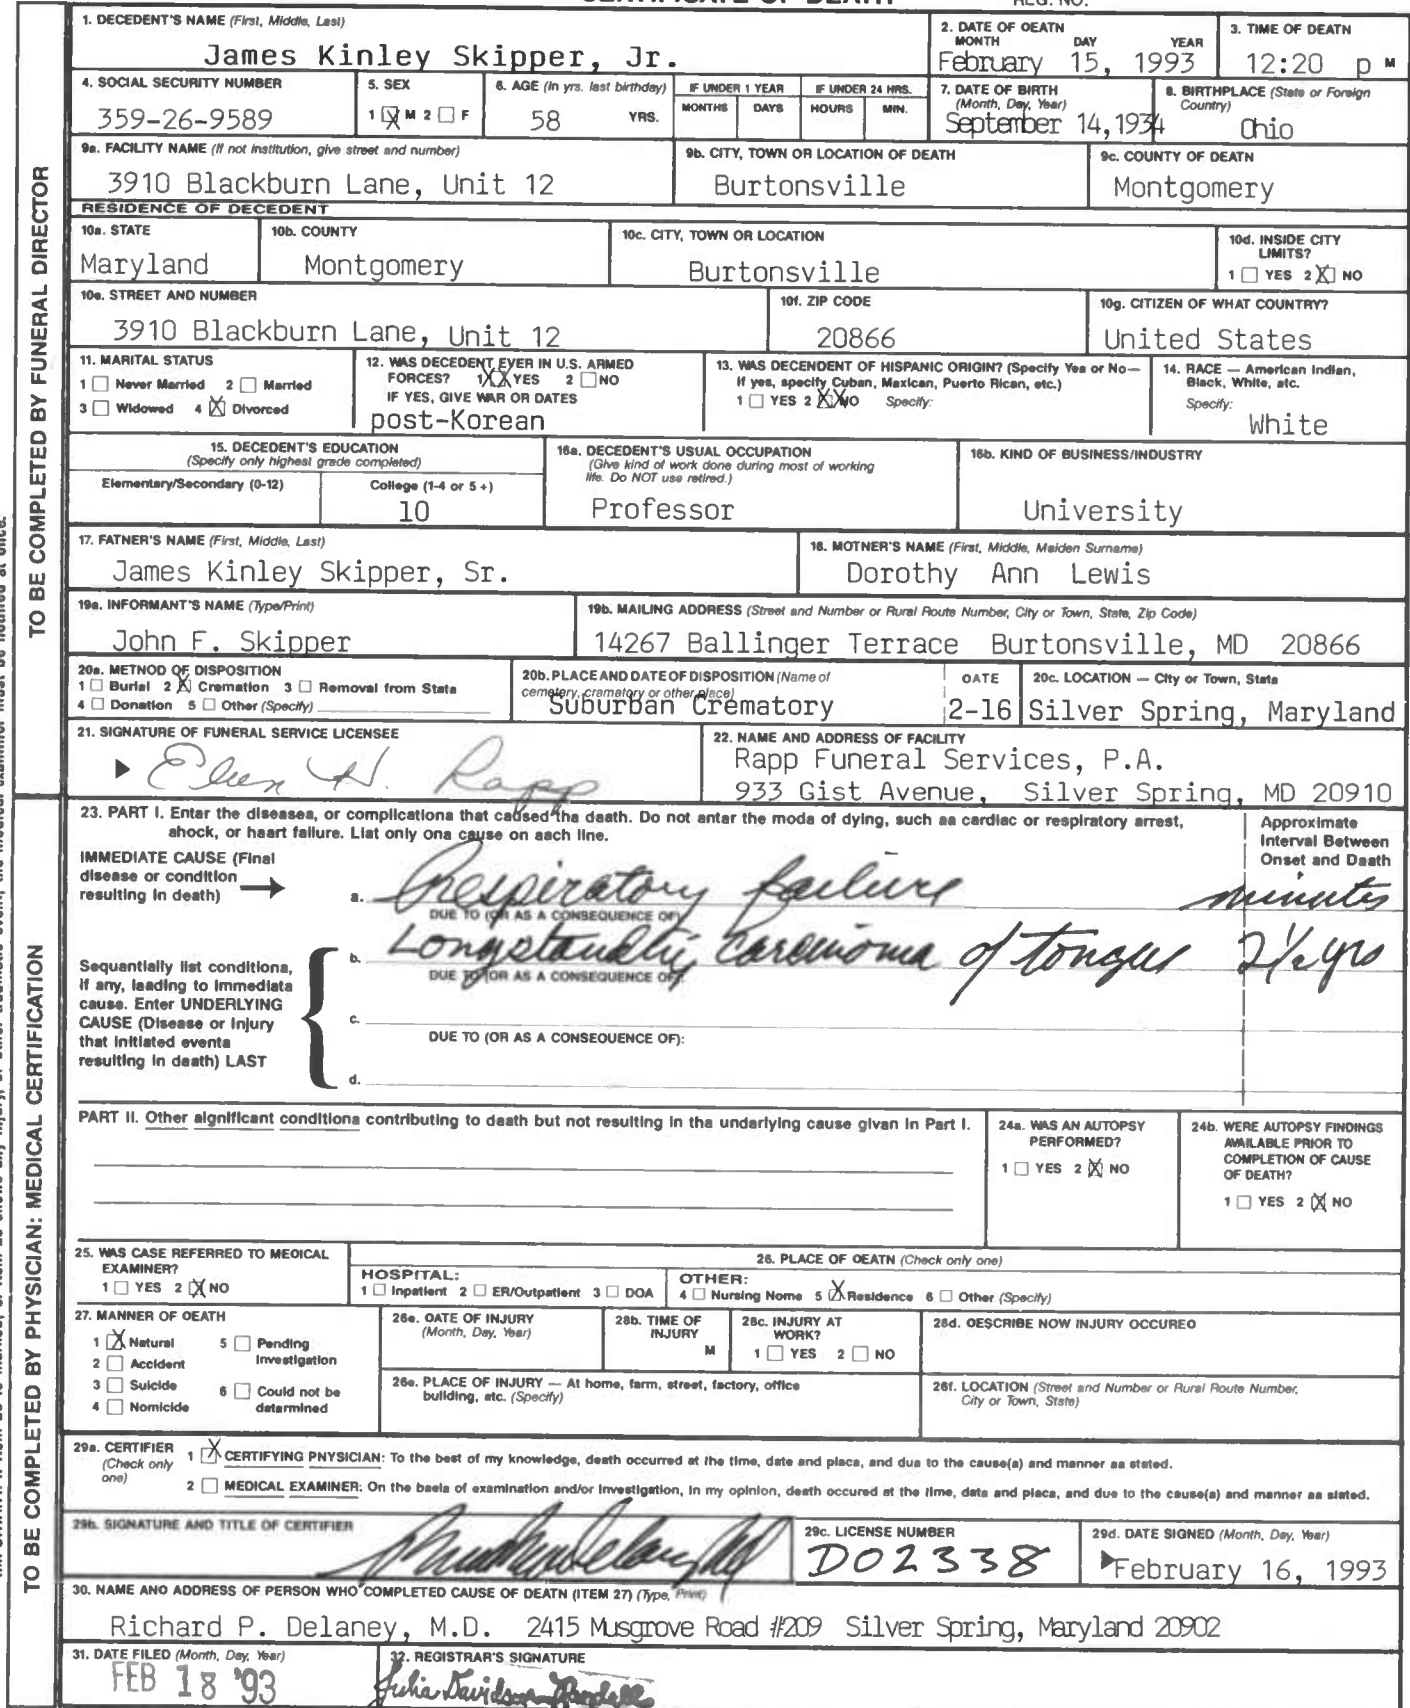 CERTIFICATE OF DEATH REG. NO.
1. DECEDENT'S NAME (First, Middle, Last)
James Kinley Skipper, Jr.
2. DATE OF OEATN
MONTH DAY YEAR
February 15, 1993
3. TIME OF DEATH
12:20 p M
4. SOCIAL SECURITY NUMBER
359-26-9589
5. SEX
1 X M 2 □ F
6. AGE (In yrs. last birthday)
58 YRS.
IF UNDER 1 YEAR
MONTHS DAYS
IF UNDER 24 HRS.
HOURS MIN.
7. DATE OF BIRTH
(Month, Day, Year)
September 14,1934
8. BIRTHPLACE (State or Foreign
Country)
Ohio
9a. FACILITY NAME (If not institution, give street and number)
3910 Blackburn Lane, Unit 12
9b. CITY, TOWN OR LOCATION OF DEATH
Burtonsville
9c. COUNTY OF DEATN
Montgomery
RESIDENCE OF DECEDENT
10a. STATE
Maryland
10b. COUNTY
Montgomery
10c. CITY, TOWN OR LOCATION
Burtonsville
10d. INSIDE CITY
LIMITS?
1 □ YES 2 X NO
10e. STREET AND NUMBER
3910 Blackburn Lane, Unit 12
10f. ZIP CODE
20866
10g. CITIZEN OF WHAT COUNTRY?
United States
11. MARITAL STATUS
1 □ Never Married 2 □ Married
3 □ Widowed 4 X Divorced
12. WAS DECEDENT EVER IN U.S. ARMED
FORCES? 1 XX YES 2 □ NO
IF YES, GIVE WAR OR DATES
post-Korean
13. WAS DECENDENT OF HISPANIC ORIGIN? (Specify Yes or No—
If yes, specify Cuban, Maxican, Puerto Rican, etc.)
1 □ YES 2 XX NO Specify:
14. RACE — American Indian,
Black, White, atc.
Specify:
White
15. DECEDENT'S EDUCATION
(Specify only highest grade completed)
Elementary/Secondary (0-12)
College (1-4 or 5 +)
10
16a. DECEDENT'S USUAL OCCUPATION
(Give kind of work done during most of working
life. Do NOT use retired.)
Professor
16b. KIND OF BUSINESS/INDUSTRY
University
17. FATNER'S NAME (First, Middle, Last)
James Kinley Skipper, Sr.
18. MOTNER'S NAME (First, Middle, Maiden Surname)
Dorothy Ann Lewis
19a. INFORMANT'S NAME (Type/Print)
John F. Skipper
19b. MAILING ADDRESS (Street and Number or Rural Route Number, City or Town, State, Zip Code)
14267 Ballinger Terrace Burtonsville, MD 20866
20a. METNOD OF DISPOSITION
1 □ Burial 2 X Cremation 3 □ Removal from Stata
4 □ Donation 5 □ Other (Specify)
20b. PLACE AND DATE OF DISPOSITION (Name of
cemetery, crematory or other place)
Suburban Crematory
OATE
2-16
20c. LOCATION — City or Town, Stata
Silver Spring, Maryland
21. SIGNATURE OF FUNERAL SERVICE LICENSEE
Rapp
22. NAME AND ADDRESS OF FACILITY
Rapp Funeral Services, P.A.
933 Gist Avenue, Silver Spring, MD 20910
TO BE COMPLETED BY FUNERAL DIRECTOR
23. PART I. Enter the diseasea, or complicationa that caused tha death. Do not antar the moda of dying, such aa cardiac or respiratory arrest,
ahock, or haart failure. Liat only ona cause on aach line.
Approximate
Interval Between
Onset and Daath
IMMEDIATE CAUSE (Final
disease or condition
resulting in death)
a. Respiratory failure minutes
DUE TO (OR AS A CONSEQUENCE OF)
b. Longstanding carcinoma of tongue 2½ yrs
DUE TO (OR AS A CONSEQUENCE OF):
Sequantially list conditions,
if any, laading to immediata
cause. Enter UNDERLYING
CAUSE (Disease or injury
that initiated eventa
resulting in daath) LAST
c.
DUE TO (OR AS A CONSEOUENCE OF):
d.
PART II. Other aignificant conditiona contributing to daath but not resulting in tha undarlying cause givan in Part I.
24a. WAS AN AUTOPSY
PERFORMED?
1 □ YES 2 X NO
24b. WERE AUTOPSY FINDINGS
AVAILABLE PRIOR TO
COMPLETION OF CAUSE
OF DEATH?
1 □ YES 2 X NO
25. WAS CASE REFERRED TO MEOICAL
EXAMINER?
1 □ YES 2 X NO
26. PLACE OF OEATN (Check only one)
HOSPITAL:
1 □ Inpatient 2 □ ER/Outpatient 3 □ DOA
OTHER:
4 □ Nursing Nome 5 X Residence 6 □ Other (Specify)
27. MANNER OF OEATH
1 X Natural 5 □ Pending
Investigation
2 □ Accident
3 □ Suicide 6 □ Could not be
datarmined
4 □ Nomicide
28a. OATE OF INJURY
(Month, Day, Year)
28b. TIME OF
INJURY
M
28c. INJURY AT
WORK?
1 □ YES 2 □ NO
28d. OESCRIBE NOW INJURY OCCUREO
28e. PLACE OF INJURY — At home, farm, street, factory, office
building, atc. (Specify)
28f. LOCATION (Street and Number or Rural Route Number,
City or Town, State)
29a. CERTIFIER
(Check only
one)
1 X CERTIFYING PNYSICIAN: To the best of my knowledge, death occurred at the time, date and placa, and due to the cause(a) and manner aa stated.
2 □ MEDICAL EXAMINER: On the baeia of examination and/or investigation, in my opinion, death occured at the time, data and placa, and due to the cause(a) and manner aa stated.
29b. SIGNATURE AND TITLE OF CERTIFIER
29c. LICENSE NUMBER
D02338
29d. DATE SIGNED (Month, Day, Year)
February 16, 1993
30. NAME ANO ADDRESS OF PERSON WHO COMPLETED CAUSE OF DEATH (ITEM 27) (Type, Print)
Richard P. Delaney, M.D. 2415 Musgrove Road #209 Silver Spring, Maryland 20902
31. DATE FILED (Month, Day, Year)
FEB 18 '93
32. REGISTRAR'S SIGNATURE
Julia Davidson-Randall
TO BE COMPLETED BY PHYSICIAN: MEDICAL CERTIFICATION